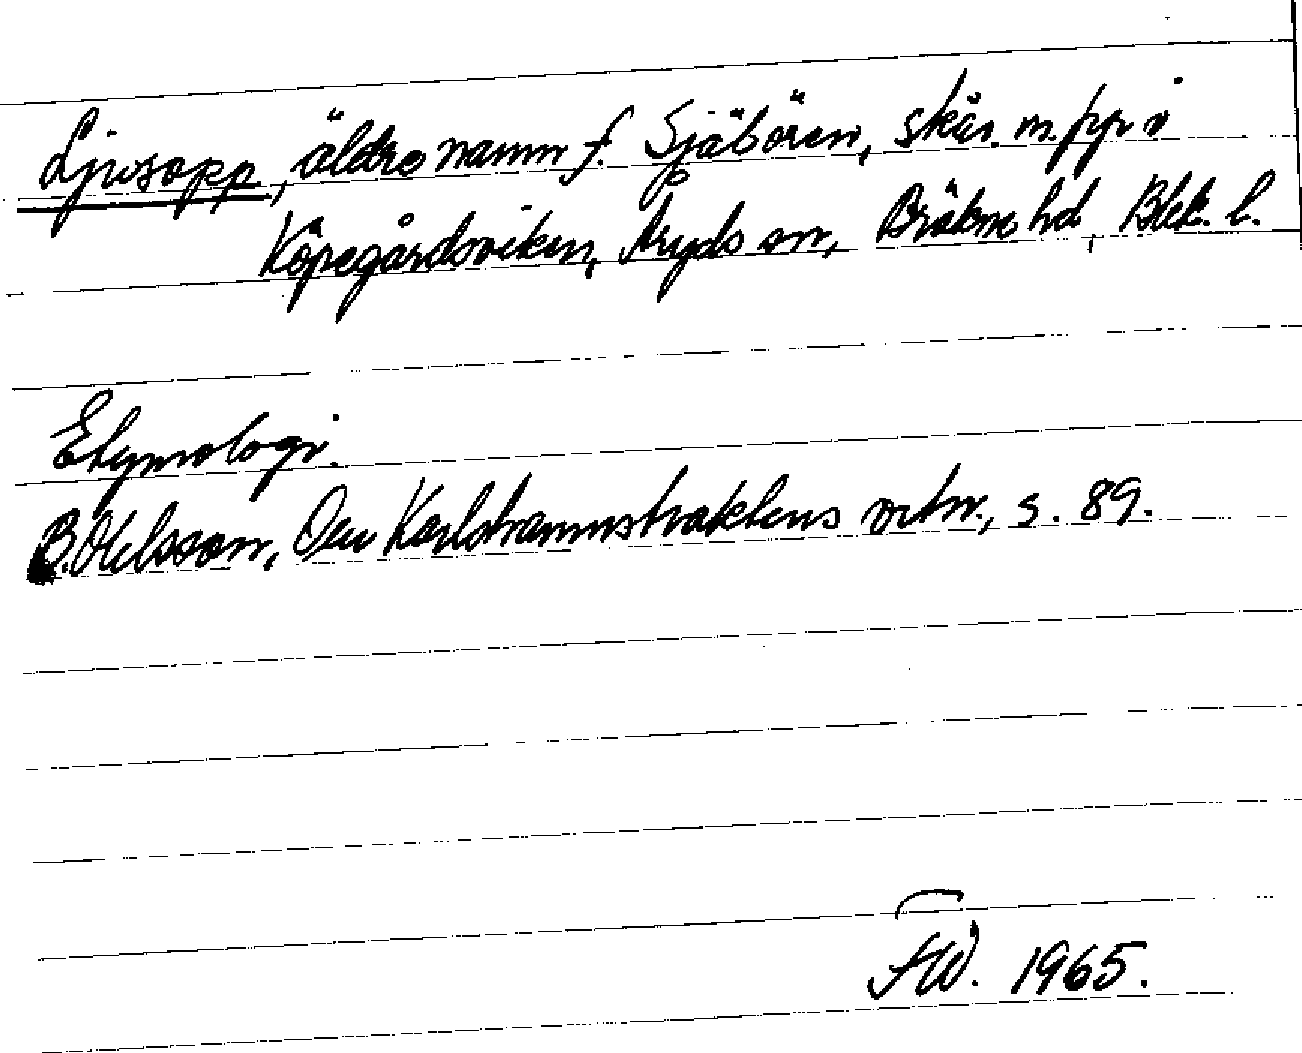 Ljusopp, äldre namn f. Sjäbören, skär m. fyr i
Köpegårdsviken, Åryds sn, Bräkne hd, Blek. l.
Etymologi.
B. Ohlsson, Om Karlshamnstraktens ortn., s. 89.
FW. 1965.